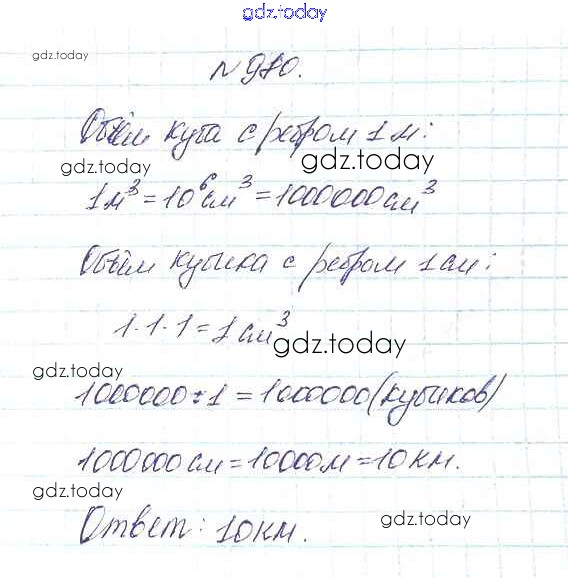 gdz.today
gdz.today
N 980.
Объём куба с ребром 1 м:
gdz.today
gdz.today
1м³ = 10⁶см³ = 1000000см³
Объём кубика с ребром 1 см:
1·1·1 = 1 см³
gdz.today
gdz.today
1000000 : 1 = 1000000 (кубиков)
1000000 см = 10000м = 10 км.
gdz.today
Ответ: 10 км.
gdz.today